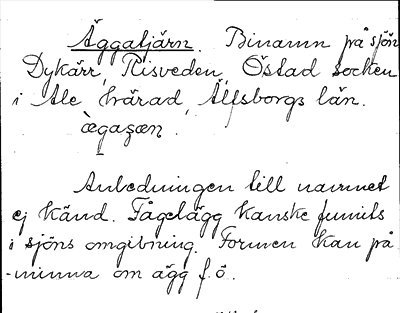 Äggatjärn. Binamn på sjön
Dykärr, Risveden, Östad socken
i Ale härad, Älfsborgs län.
ægaʂæn.
Anledningen till namnet
ej känd. Fågelägg kanske funnits
i sjöns omgivning. Formen kan på
-minna om ägg f.ö.